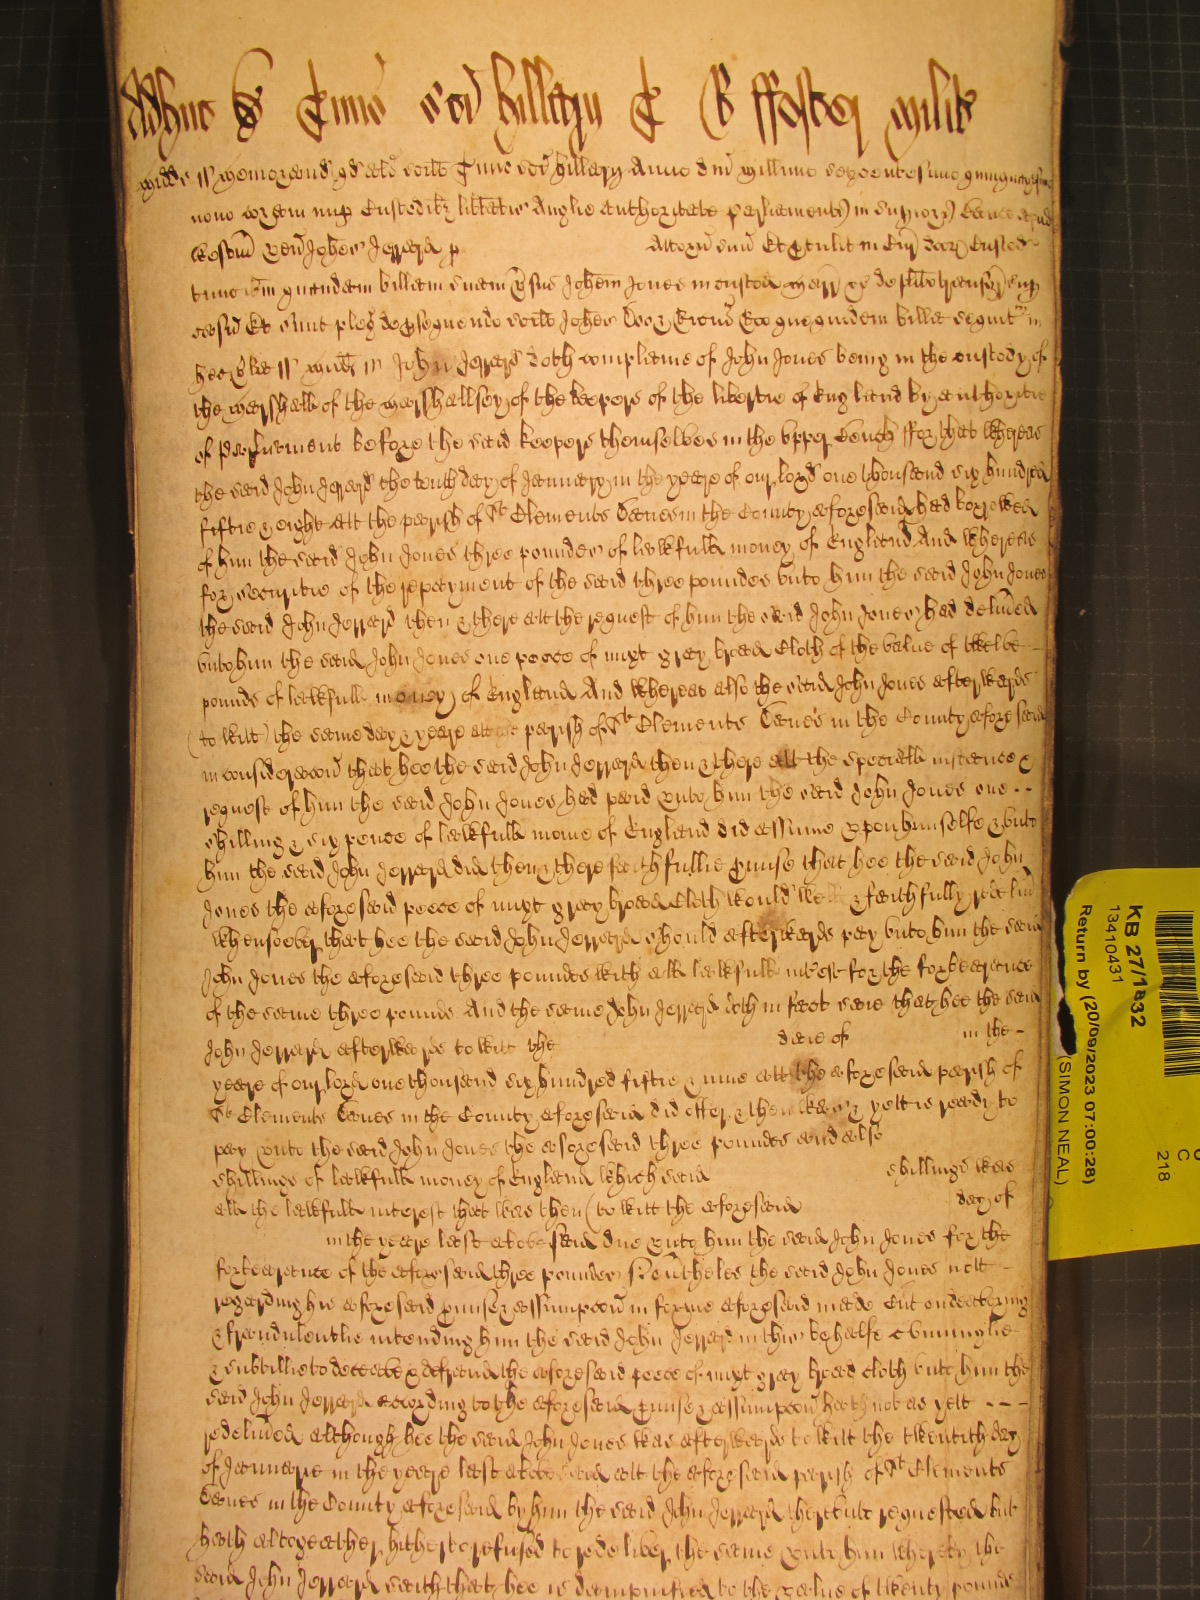 Adhuc de Termino sci Hillarii
Midds ss Memorand qd als scilt Termino sci Hillarii Anno dni Millimo sexcentesimo quinquagesimo
nono coram nup Custodibz libtatis Anglie authoritate parliamenti in Superiori banco apud
Westm ven Johes Jerrard p Attorn suu Et ptulit in Cur dcor Custod
tunc ibm quandam billam suam vsus Johem Jones in custod Marr &c de plito transgr sup
casu Et sunt pleg de psequendo scilt Johes Doe & Ricus Roe que quidem billa sequit in
hec vba ss Midds ss John Jerrard doth complaine of John Jones being in the custody of
the Marshall of the Marshallsey of the keepers of the libertie of England by authoritie
of Parliament before the said keepers themselves in the vpper bench ffor that Whereas
the said John Jerrard the tenth day of January in the yeare of our lord one thousand six hundred
fiftie & eight att the parish of St Clements Danes in the County aforesaid had borrowed
of him the said John Jones three poundes of lawfull money of England And whereas
for securitie of the repayment of the said three poundes vnto him the said John Jones
the said John Jerrard then & there att the request of him the said John Jones had delived
vnto him the said John Jones one peece of mixt gray broad Cloth of the value of twelve
pounds of lawfull money of England And whereas also the said John Jones afterwards
(to witt) the same day & yeare att the parish of St Clements Danes in the County aforesaid
in consideracon that hee the said John Jerrard then & there att the speciall instance &
request of him the said John Jones had paid vnto him the said John Jones one
shilling & six pence of lawfull monie of England did assume vpon himselfe & vnto
him the said John Jerrard did then & there faithfullie pmise that hee the said John
Jones the aforesaid peece of mixt gray broad Cloth would well & faithfully redelivr
whensoever that hee the said John Jerrard should afterwards pay vnto him the said
John Jones the aforesaid three poundes with all lawfull intrest for the forbearance
of the same three pounds And the same John Jerrard doth in fact saie that hee the said
John Jerrard afterwards to witt the daie of in the
yeare of our lord one thousand six hundred fiftie & nine att the aforesaid parish of
St Clements Danes in the County aforesaid did offer & then was & yett is ready to
pay vnto the said John Jones the aforesaid three poundes and also
shillings of lawfull money of England which said shillings was
all the lawfull interest that was then (to witt the aforesaid day of
in the yeare last abovesaid due vnto him the said John Jones for the
forbearance of the aforesaid three poundes Nevtheles the said John Jones nott
regarding his aforesaid pmise & assumpcon in forme aforesaid made but endeavoring
& fraudulentlie intending him the said John Jerrard in this behalfe cuninglie
& subtillie to deceave & defraud the aforesaid peece of mixt gray broad cloth vnto him the
said John Jerrard according to the aforesaid pmise & assumpcon hath not as yett
redelived although hee the said John Jones was afterwards to witt the twentith day
of Januarie in the yeare last abovesaid att the aforesaid parish of St Clements
Danes in the County aforesaid by him the said John Jerrard thereunto requested but
hath altogeather hitherto refused to redeliver the same vnto him whereby the
said John Jerrard saith that hee is dampnified to the value of twenty pounds
KB 27/1832
13410431
Return by (20/09/2023 07:00:28)
(SIMON NEAL)
C
218